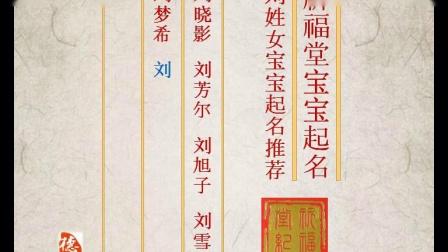 祈福堂宝宝起名
刘姓女宝宝起名推荐
刘晓影 刘芳尔 刘旭子 刘雪
刘梦希 刘
祈福
德